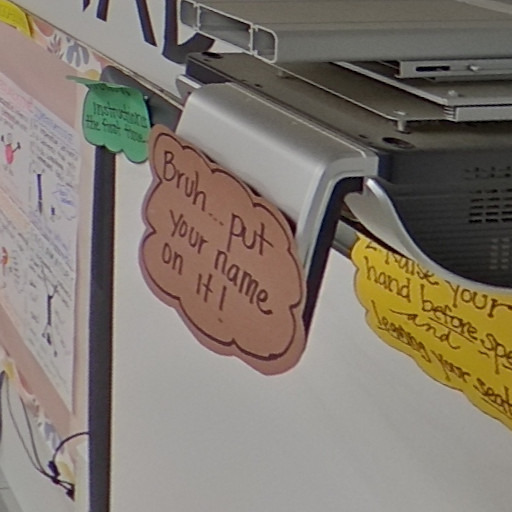 instructions
the first time.
Bruh... put
your name
on it!
2. Raise your
hand before spe
and
leaving your seat